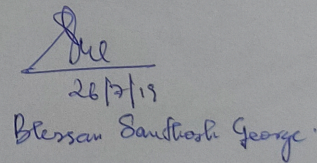 26/7/19
Blessan Santhosh George